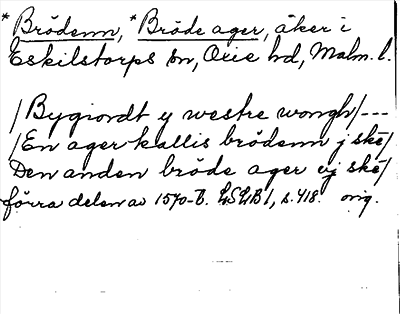 *Brödenn, *Bröde ager, åker i
Eskilstorps sn, Oxie hd, Malm. l.
/Bygiordt y westre wongh/---
/En ager kallis brödenn j skē/
Den anden bröde ager vj skē/
förra delen av 1570-t. LSLB 1, s. 418. orig.